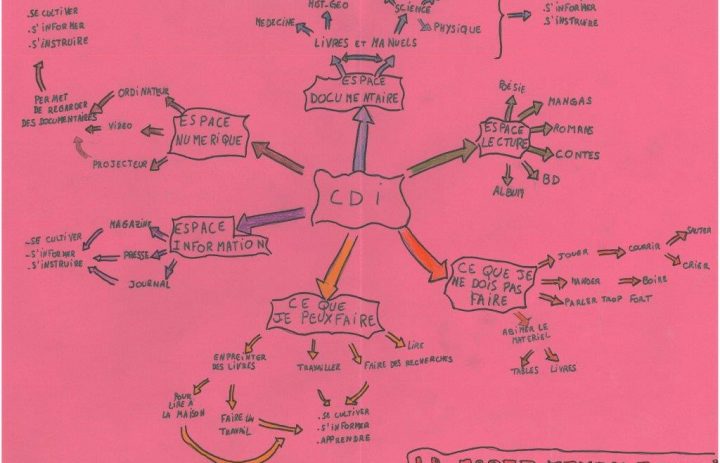 .SE CULTIVER
.S'INFORMER
.S'INSTRUIRE
HIST-GEO
SCIENCE
MEDECINE
PHYSIQUE
LIVRES ET MANUELS
.S'INFORMER
.S'INSTRUIRE
ESPACE
DOCUMENTAIRE
PERMET
DE REGARDER
DES DOCUMENTAIRES
ORDINATEUR
VIDEO
PROJECTEUR
ESPACE
NUMERIQUE
POÉSIE
MANGAS
ROMANS
CONTES
BD
ALBUM
ESPACE
LECTURE
CDI
ESPACE
INFORMATION
MAGAZINE
PRESSE
JOURNAL
-SE CULTIVER
-S'INFORMER
-S'INSTRUIRE
CE QUE
JE PEUX FAIRE
CE QUE JE
NE DOIS PAS
FAIRE
JOUER
COURRIR
SAUTER
CRIER
MANGER
BOIRE
PARLER TROP FORT
ABIMER LE
MATERIEL
TABLES
LIVRES
ENPREINTER
DES LIVRES
TRAVAILLER
FAIRE DES RECHERCHES
LIRE
POUR
LIRE A
LA MAISON
FAIRE UN
TRAVAIL
.SE CULTIVER
.S'INFORMER
.APPRENDRE